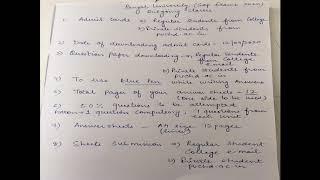 Panjab University (Sep Exams 2020)
Outgoing Classes
1) Admit Cards a) Regular Students from College
b) Private Students from
puchd.ac.in
2) Date of downloading admit cards: 12/09/2020
3) Question Paper downloading a) Regular Students
from College
e.mail
b) Private Students from
puchd.ac.in
4) To use blue Pen while writing Answers
5) Total Pages of your answer sheets = 12
(one side to be used)
6) 50% questions to be attempted
1 question compulsory; 1 question from
each unit
7) Answer sheets - A4 size 12 pages
(lined)
8) Sheets Submission a) Regular Student
College e-mail
b) Private Student
puchd.ac.in